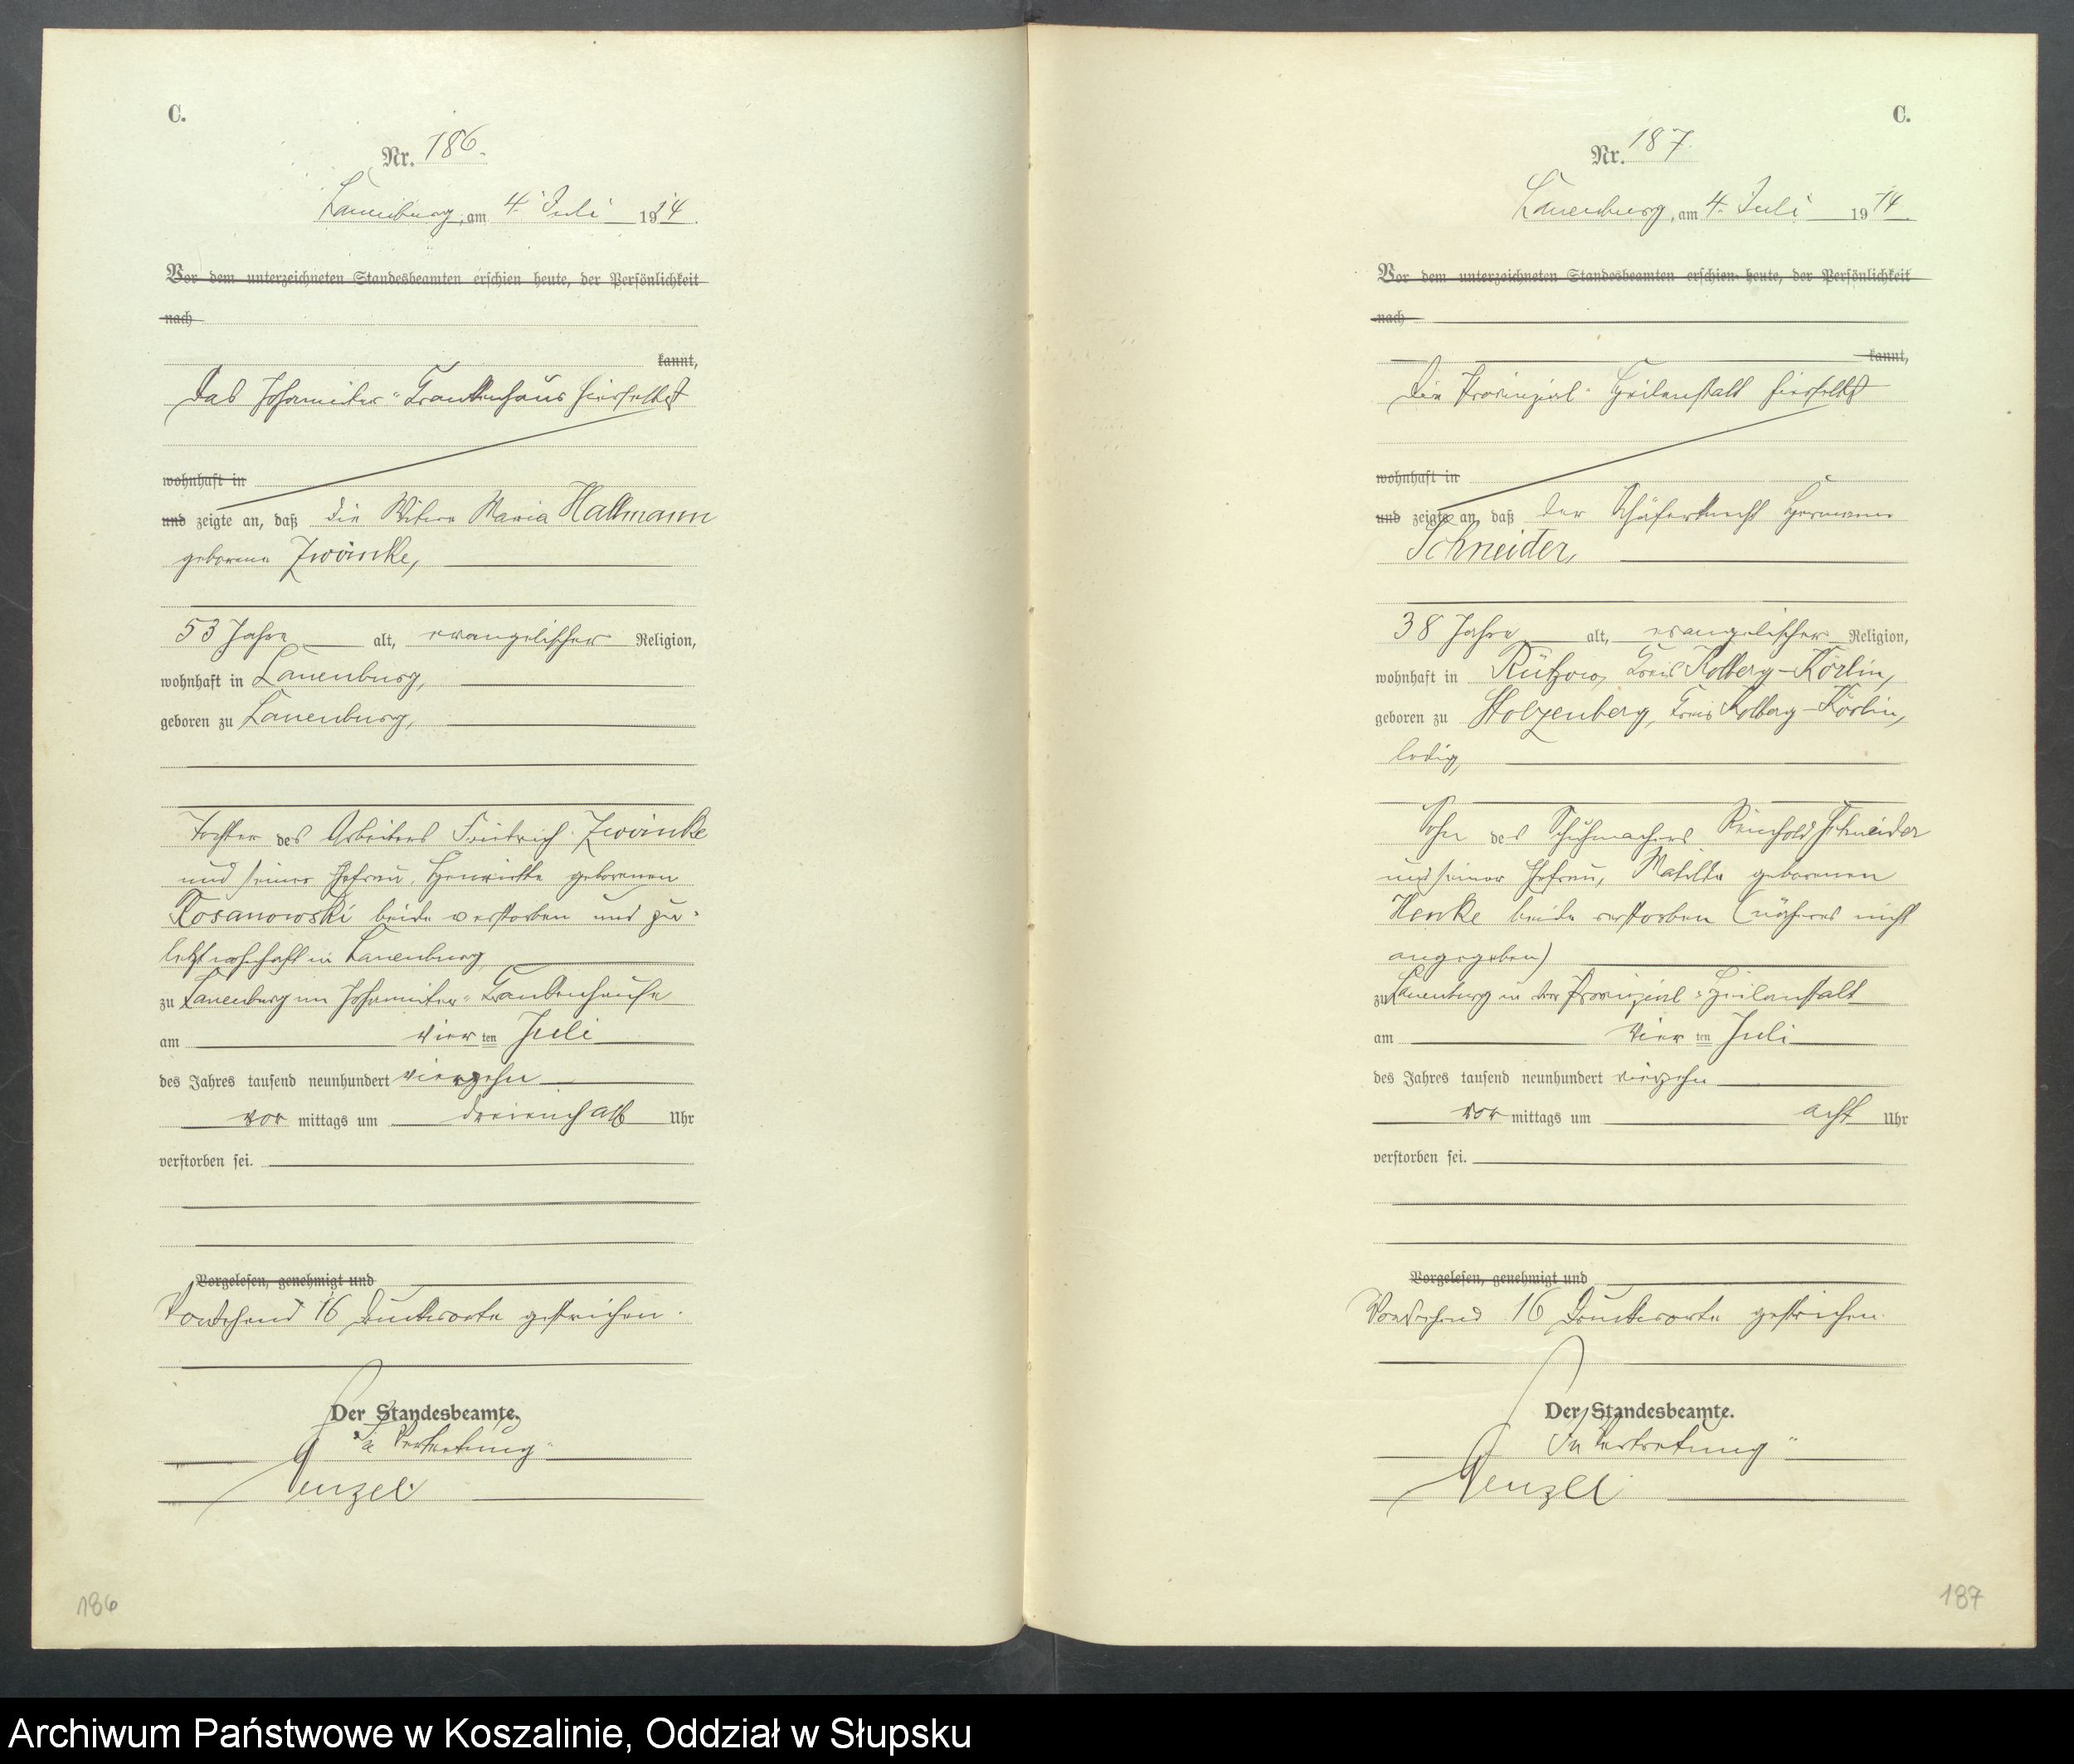 C.
Nr. 186.
Lauenburg, am 4. Juli 1914.
Vor dem unterzeichneten Standesbeamten erschien heute, der Persönlichkeit
nach
kannt,
Das Johanniter-Krankenhaus hierselbst
wohnhaft in
und zeigte an, daß die Witwe Maria Hallmann
geborene Zwoinke,
53 Jahre alt, evangelischer Religion,
wohnhaft in Lauenburg,
geboren zu Lauenburg,
Tochter des Arbeiters Friedrich Zwoinke
und seiner Ehefrau, Henriette geborenen
Kosanowski beide verstorben und zu-
letzt wohnhaft in Lauenburg
zu Lauenburg im Johanniter-Krankenhause
am vierten Juli
des Jahres tausend neunhundert vierzehn
vormittags um dreieinhalb Uhr
verstorben sei.
Vorgelesen, genehmigt und
Vorstehend 16 Druckworte gestrichen.
Der Standesbeamte.
In Vertretung
Wenzel
186
C.
Nr. 187.
Lauenburg, am 4. Juli 1914
Vor dem unterzeichneten Standesbeamten erschien heute, der Persönlichkeit
nach
kannt,
Die Provinzial-Heilanstalt hierselbst
wohnhaft in
und zeigte an, daß der Schäferknecht Hermann
Schneider,
38 Jahre alt, evangelischer Religion,
wohnhaft in Rützow, Kreis Kolberg-Körlin,
geboren zu Stolzenberg, Kreis Kolberg-Körlin,
ledig,
Sohn des Schuhmachers Reinhold Schneider
und seiner Ehefrau, Mathilde geborenen
Henke beide verstorben (näheres nicht
angegeben)
zu Lauenburg in der Provinzial-Heilanstalt
am vierten Juli
des Jahres tausend neunhundert vierzehn
vormittags um acht Uhr
verstorben sei.
Vorgelesen, genehmigt und
Vorstehend 16 Druckworte gestrichen.
Der Standesbeamte.
In Vertretung
Wenzel
187
Archiwum Państwowe w Koszalinie, Oddział w Słupsku